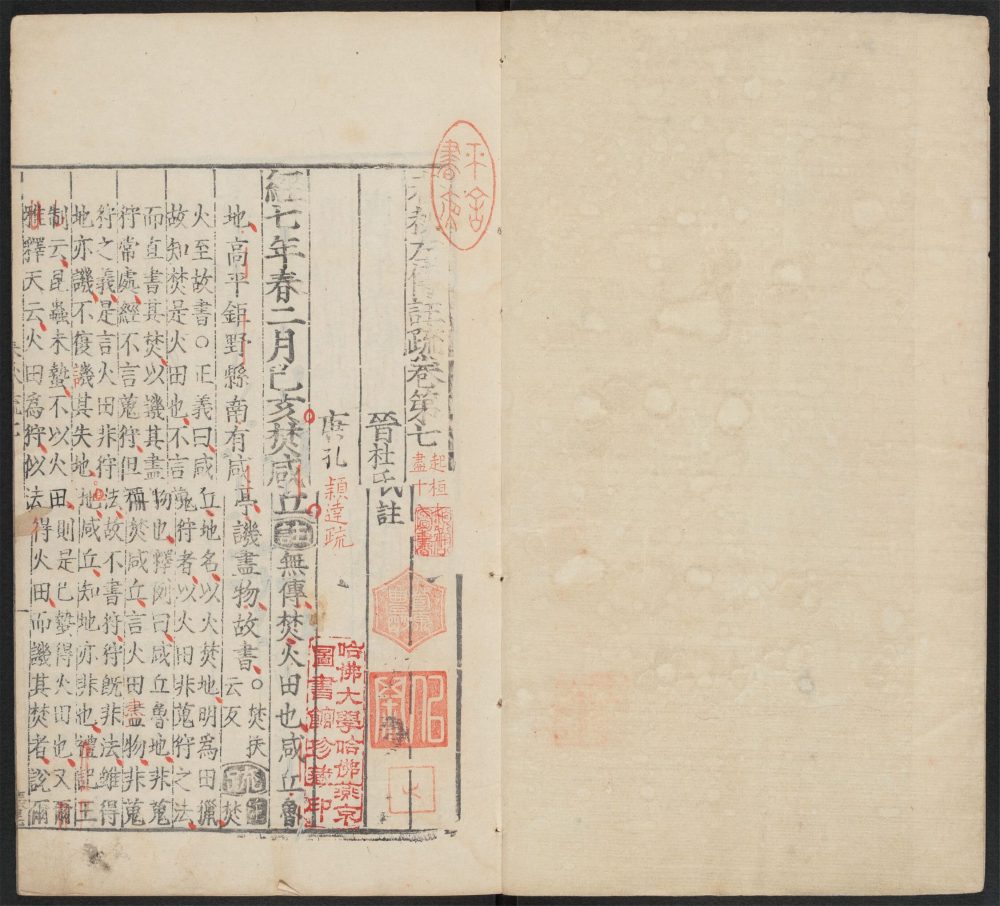 春秋左傳註疏卷第七
起桓
盡十
晉杜氏註
唐孔穎達疏
經七年春二月己亥焚咸丘註無傳焚火田也咸丘魯
地高平鉅野縣南有咸亭譏盡物故書○焚扶云反疏註焚
火至故書○正義曰咸丘地名以火焚地明為田獵
故知焚是火田也不言蒐狩者以火田非蒐狩之法
而直書其焚以譏其盡物也釋例曰咸丘魯地非蒐
狩常處經不言蒐狩但稱焚咸丘言火田盡物非蒐
狩之義是言火田非狩法故不書狩狩既非法雖得
地亦譏不復譏其失地地咸丘知地亦非也禮記王
制云昆蟲未蟄不以火田則是已蟄得火田也又爾
雅釋天云火田為狩似法得火田而譏其焚者說爾
哈佛大學哈佛燕京
圖書館珍藏印